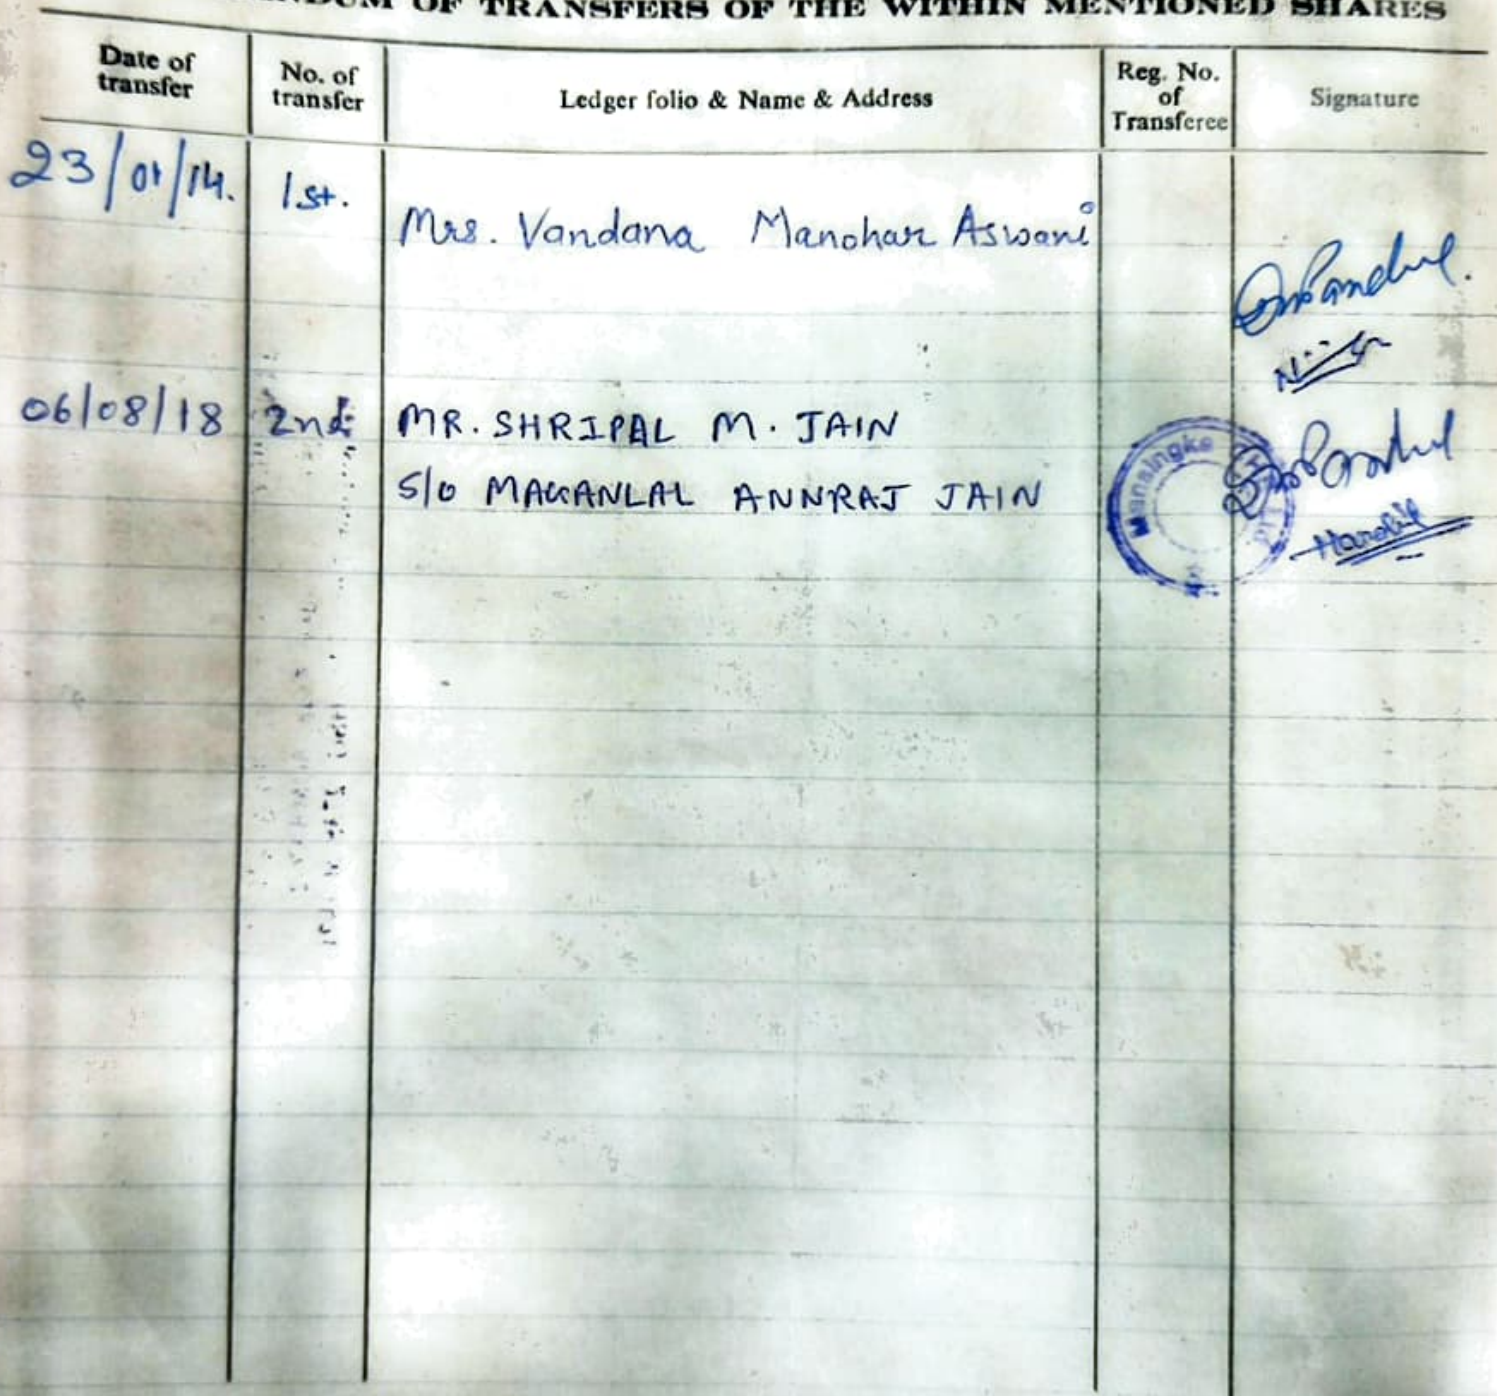 OF TRANSFERS OF THE WITHIN MENTIONED SHARES
Date of transfer
No. of transfer
Ledger folio & Name & Address
Reg. No. of Transferee
Signature
23/01/14.
1st.
Mrs. Vandana Manohar Aswani
06/08/18
2nd
MR. SHRIPAL M. JAIN
S/O MAGANLAL ANNRAJ JAIN